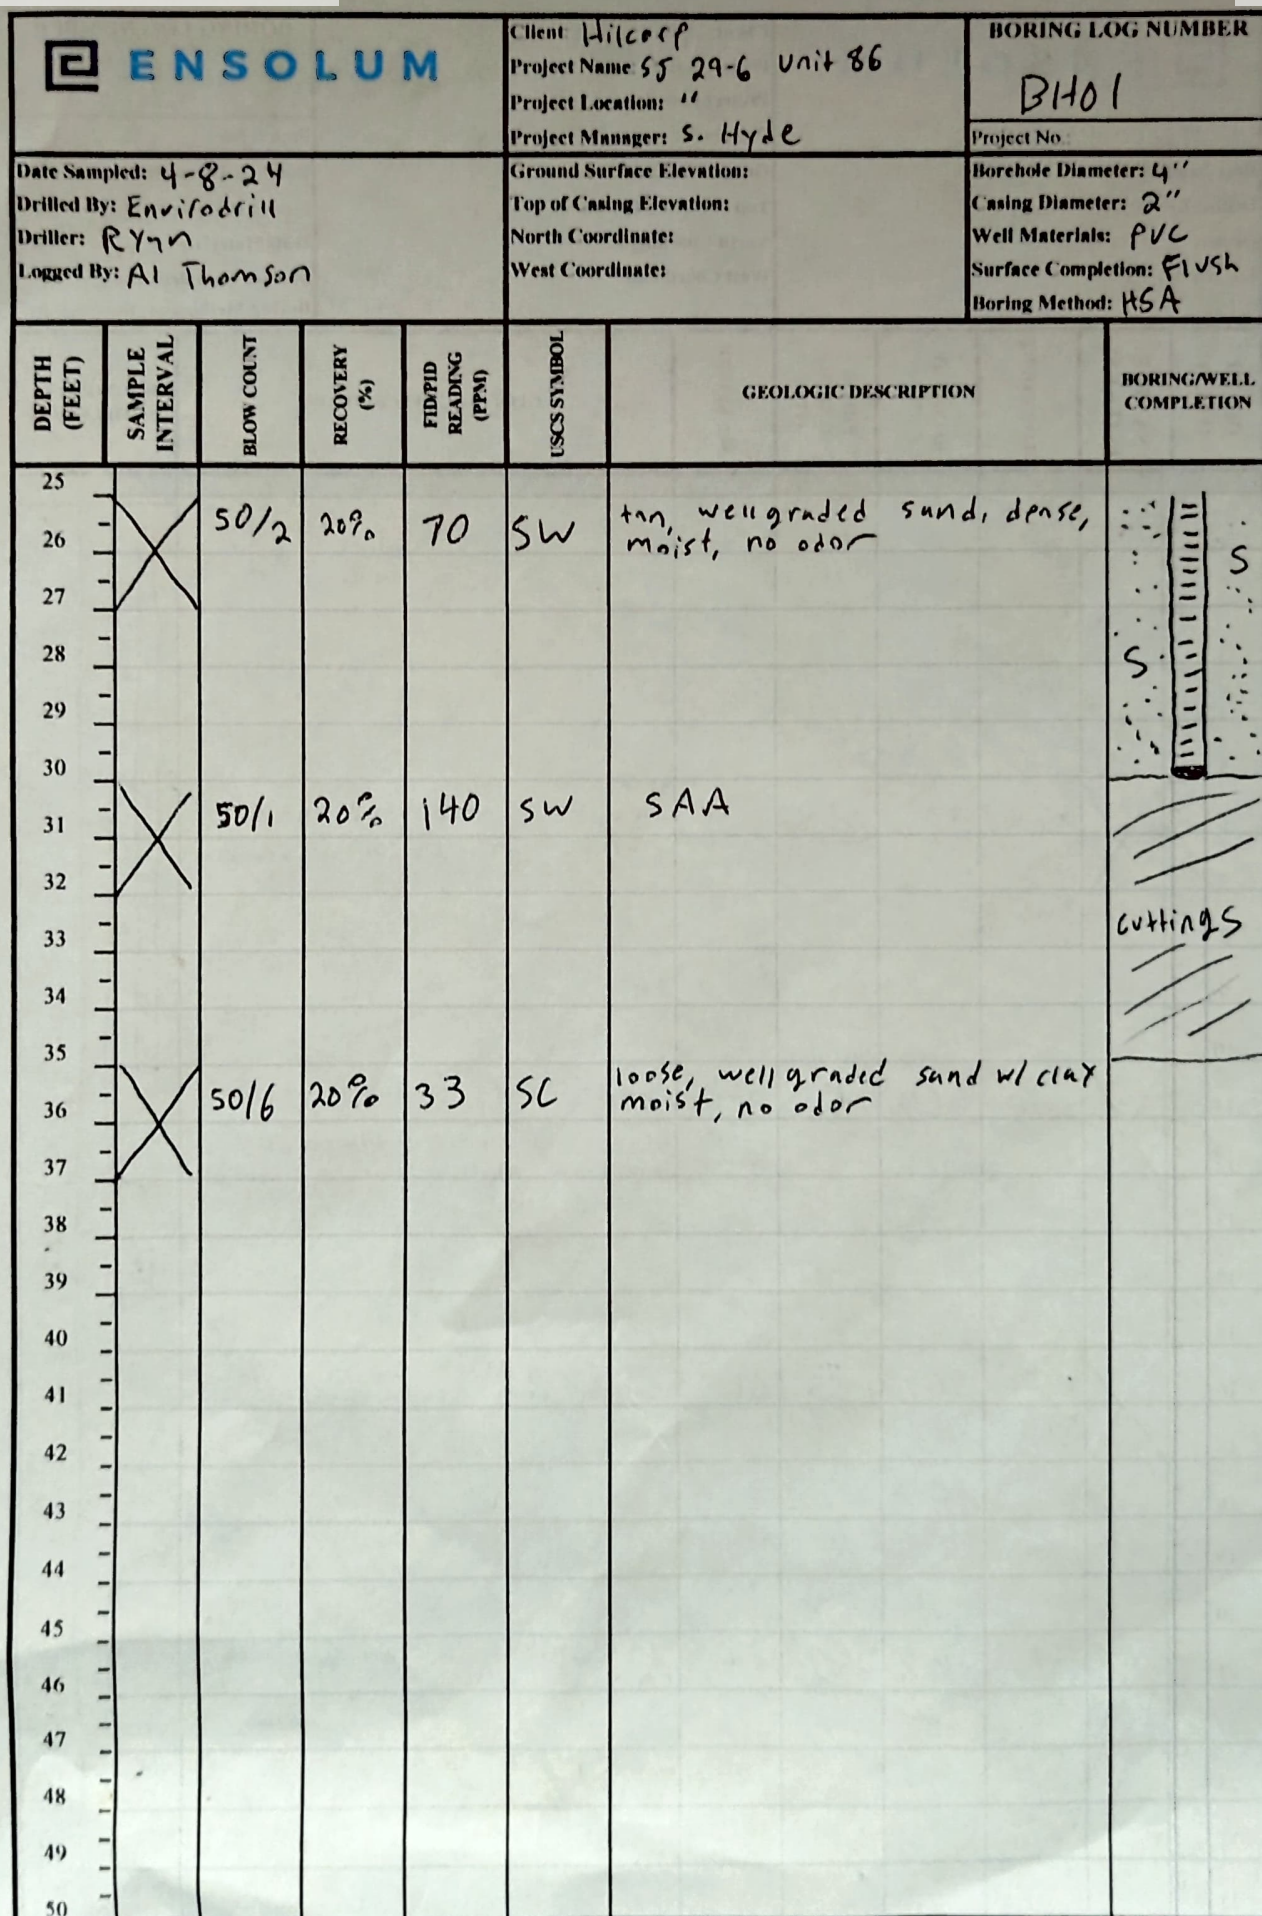 ENSOLUM
Client: Hilcorp
Project Name SJ 29-6 Unit 86
Project Location: "
Project Manager: S. Hyde
BORING LOG NUMBER
BH01
Project No.
Date Sampled: 4-8-24
Drilled By: Envirodrill
Driller: Ryan
Logged By: Al Thomson
Ground Surface Elevation:
Top of Casing Elevation:
North Coordinate:
West Coordinate:
Borehole Diameter: 4"
Casing Diameter: 2"
Well Materials: PVC
Surface Completion: Flush
Boring Method: HSA
DEPTH
(FEET)
SAMPLE
INTERVAL
BLOW COUNT
RECOVERY
(%)
FID/PID
READING
(PPM)
USCS SYMBOL
GEOLOGIC DESCRIPTION
BORING/WELL
COMPLETION
25
50/2 20% 70 SW tan, well graded sand, dense,
26 moist, no odor
S
27
28
S
29
30
31 50/1 20% 140 SW SAA
32
cuttings
33
34
35
loose, well graded sand w/ clay
36 50/6 20% 33 SC moist, no odor
37
38
39
40
41
42
43
44
45
46
47
48
49
50